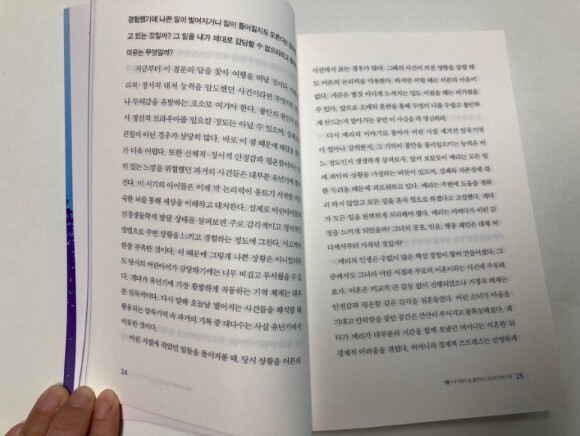 경험했기에 나쁜 일이 벌어지거나 일이 틀어질지도 모른다는
고 있는 것일까? 그 일을 내가 제대로 감당할 수 없으리라고
이유는 무엇일까?
지금부터 이 질문의 답을 찾아 여행을 떠날 것이다.
리적·정서적 대처 능력을 압도했던 사건이라면 무엇이든
나 무력감을 유발하는 요소로 여기야 한다. 불안의 원인이
시 정신적 트라우마를 일으킬 정도는 아닐 수 있으며,
큰일이 아닌 경우가 상당히 많다. 바로 이 점 때문에 해답을
가 더욱 어렵다. 또한 신체적·정서적 안정감과 평온함이라는
히 있는 느낌을 위협했던 과거의 사건들은 대부분 유년기에
다. 이 시기의 아이들은 이제 막 논리력이 움트기 시작한
숙한 뇌를 통해 세상을 이해하고 대처한다. 실제로 어린아이들의
신경생물학적 발달 상태를 살펴보면 주로 감각적이고 정서적인
방법으로 주변 상황을 느끼고 경험하는 정도에 그친다. 사고력이
한참 부족한 것이다. 이 때문에 그렇게 나쁜 상황은 아니었더라
도 당시의 어린아이가 감당하기에는 너무 버겁고 무서웠을 수 있
다. 게다가 유년기에 가장 활발하게 작동하는 기억 체계는 대부
분 암묵적이다. 다시 말해 오늘날 벌어지는 사건들을 해석할 때
활용되는 암묵적 기억 속 과거의 기록 중 대다수는 사실 유년기에서
비롯한 것이다.
어린 시절에 겪었던 일들을 돌이켜볼 때, 당시 상황을 어른의
24
시선에서 보는 경우가 많다. 그때의 사건이 끼친 영향을 살필 때
도 어른의 논리력을 사용한다. 하지만 어릴 때는 어른의 마음이
없다. 지금은 별것 아니게 느껴지는 일도 어렸을 때는 버거웠을
수 있다. 앞으로 소매틱 훈련을 통해 무엇이 나를 두렵고 불안하
게 만드는지 알아가는 동안 이 사실을 꼭 명심하라.
다시 메리의 이야기로 돌아가 어린 시절 새겨진 암묵기억
이 얼마나 강력한지, 그 기억이 불안을 불러일으키는 능력은 어
느 정도인지 생생하게 살펴보자. 앞서 보았듯이 메리는 모든 일
에 최악의 상황을 가정하는 버릇이 있으며, 실패와 의존성에 대
한 두려움 때문에 괴로워하고 있다. 메리는 주변에 도움을 청하
려 하지 않았고 모든 일을 혼자 힘으로 하겠다고 고집했다. 게다
가 모든 일을 완벽하게 처리해야 했다. 메리는 아버지가 어떤 감
정을 느끼게 되었을까? 그녀의 공포, 믿음, 행동 패턴은 대체 어
디에서부터 시작된 것일까?
메리의 인생은 수없이 많은 핵심 경험이 쌓여 만들어졌다. 그
중에서도 그녀의 어린 시절과 부모의 이혼이라는 사건에 주목해
보자. 이혼은 비교적 큰 갈등 없이 진행되었으나 가정의 해체는
안전감과 평온함 같은 감각을 뒤흔들었다. 어린 소녀가 마음을
기대고 안락함을 찾던 공간은 산산이 부서지고 불확실해졌다. 게
다가 메리가 대부분의 시간을 함께 보냈던 어머니는 이혼한 뒤
경제적 어려움을 겪었다. 어머니의 경제적 스트레스는 선명하게
25